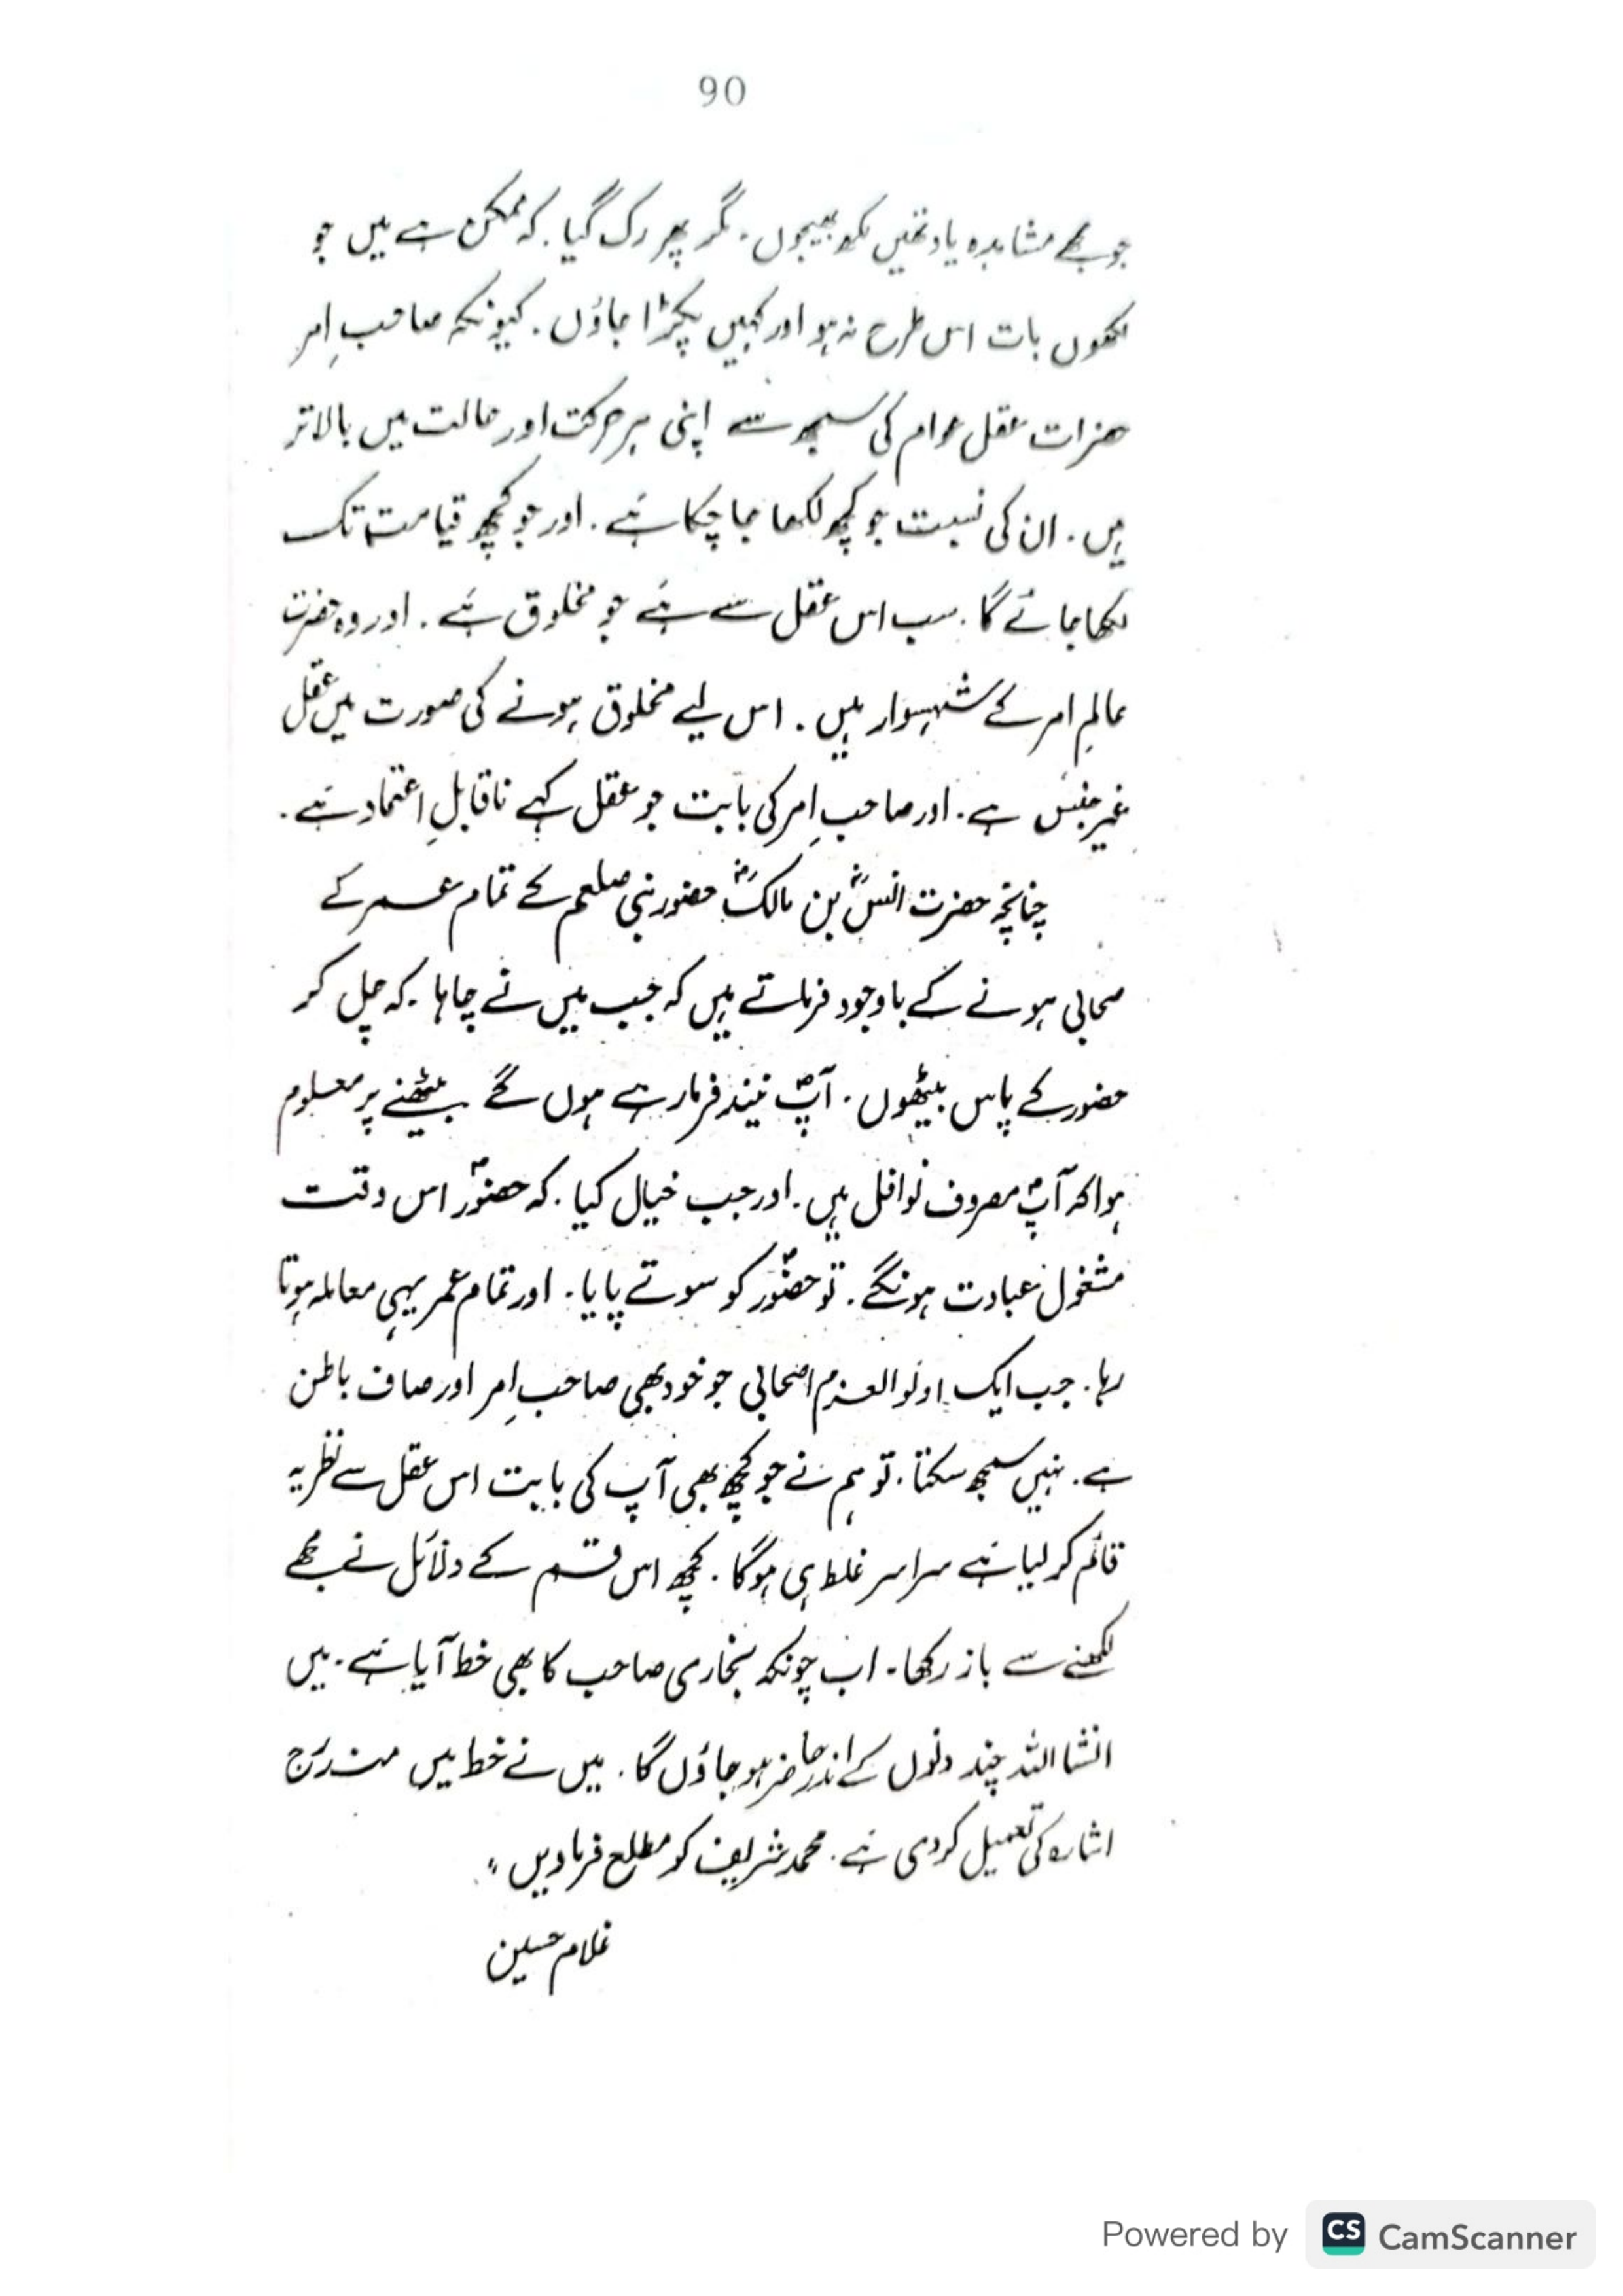 90
جو مجھے مشاہدہ یاد تھیں لکھ بھیجوں۔ مگر پھر رک گیا۔ کہ ممکن ہے میں جو
لکھوں بات اس طرح نہ ہو اور کہیں پکڑا جاؤں۔ کیونکہ صاحبِ امر
حضرات عقل عوام کی سمجھ سے اپنی ہر حرکت اور حالت میں بالاتر
ہیں۔ ان کی نسبت جو کچھ لکھا جا چکا ہے۔ اور جو کچھ قیامت تک
لکھا جائے گا۔ سب اس عقل سے ہے جو مخلوق ہے۔ اور وہ حضرت
عالمِ امر کے شہسوار ہیں۔ اس لیے مخلوق ہونے کی صورت میں عقل
غیر جنس ہے۔ اور صاحبِ امر کی بابت جو عقل کہے ناقابلِ اعتماد ہے۔
چنانچہ حضرت انسؓ بن مالکؓ حضور نبی صلعم کے تمام عمر کے
صحابی ہونے کے باوجود فرماتے ہیں کہ جب میں نے چاہا۔ کہ چل کر
حضور کے پاس بیٹھوں۔ آپؐ نیند فرما رہے ہوں گے بیٹھنے پر معلوم
ہوا کہ آپؐ مصروف نوافل ہیں۔ اور جب خیال کیا۔ کہ حضورؐ اس وقت
مشغول عبادت ہونگے۔ تو حضورؐ کو سوتے پایا۔ اور تمام عمر یہی معاملہ ہوتا
رہا۔ جب ایک اولوالعزم اصحابی جو خود بھی صاحبِ امر اور صاف باطن
ہے۔ نہیں سمجھ سکتا۔ تو ہم نے جو کچھ بھی آپ کی بابت اس عقل سے نظریہ
قائم کر لیا ہے سراسر غلط ہی ہوگا۔ کچھ اس قسم کے دلائل نے مجھے
لکھنے سے باز رکھا۔ اب چونکہ بخاری صاحب کا بھی خط آیا ہے۔ میں
انشا اللہ چند دنوں کے اندر حاضر ہو جاؤں گا۔ میں نے خط میں مندرج
اشارہ کی تعمیل کر دی ہے۔ محمد شریف کو مطلع فرما دیں"
غلام حسین
Powered by CS CamScanner